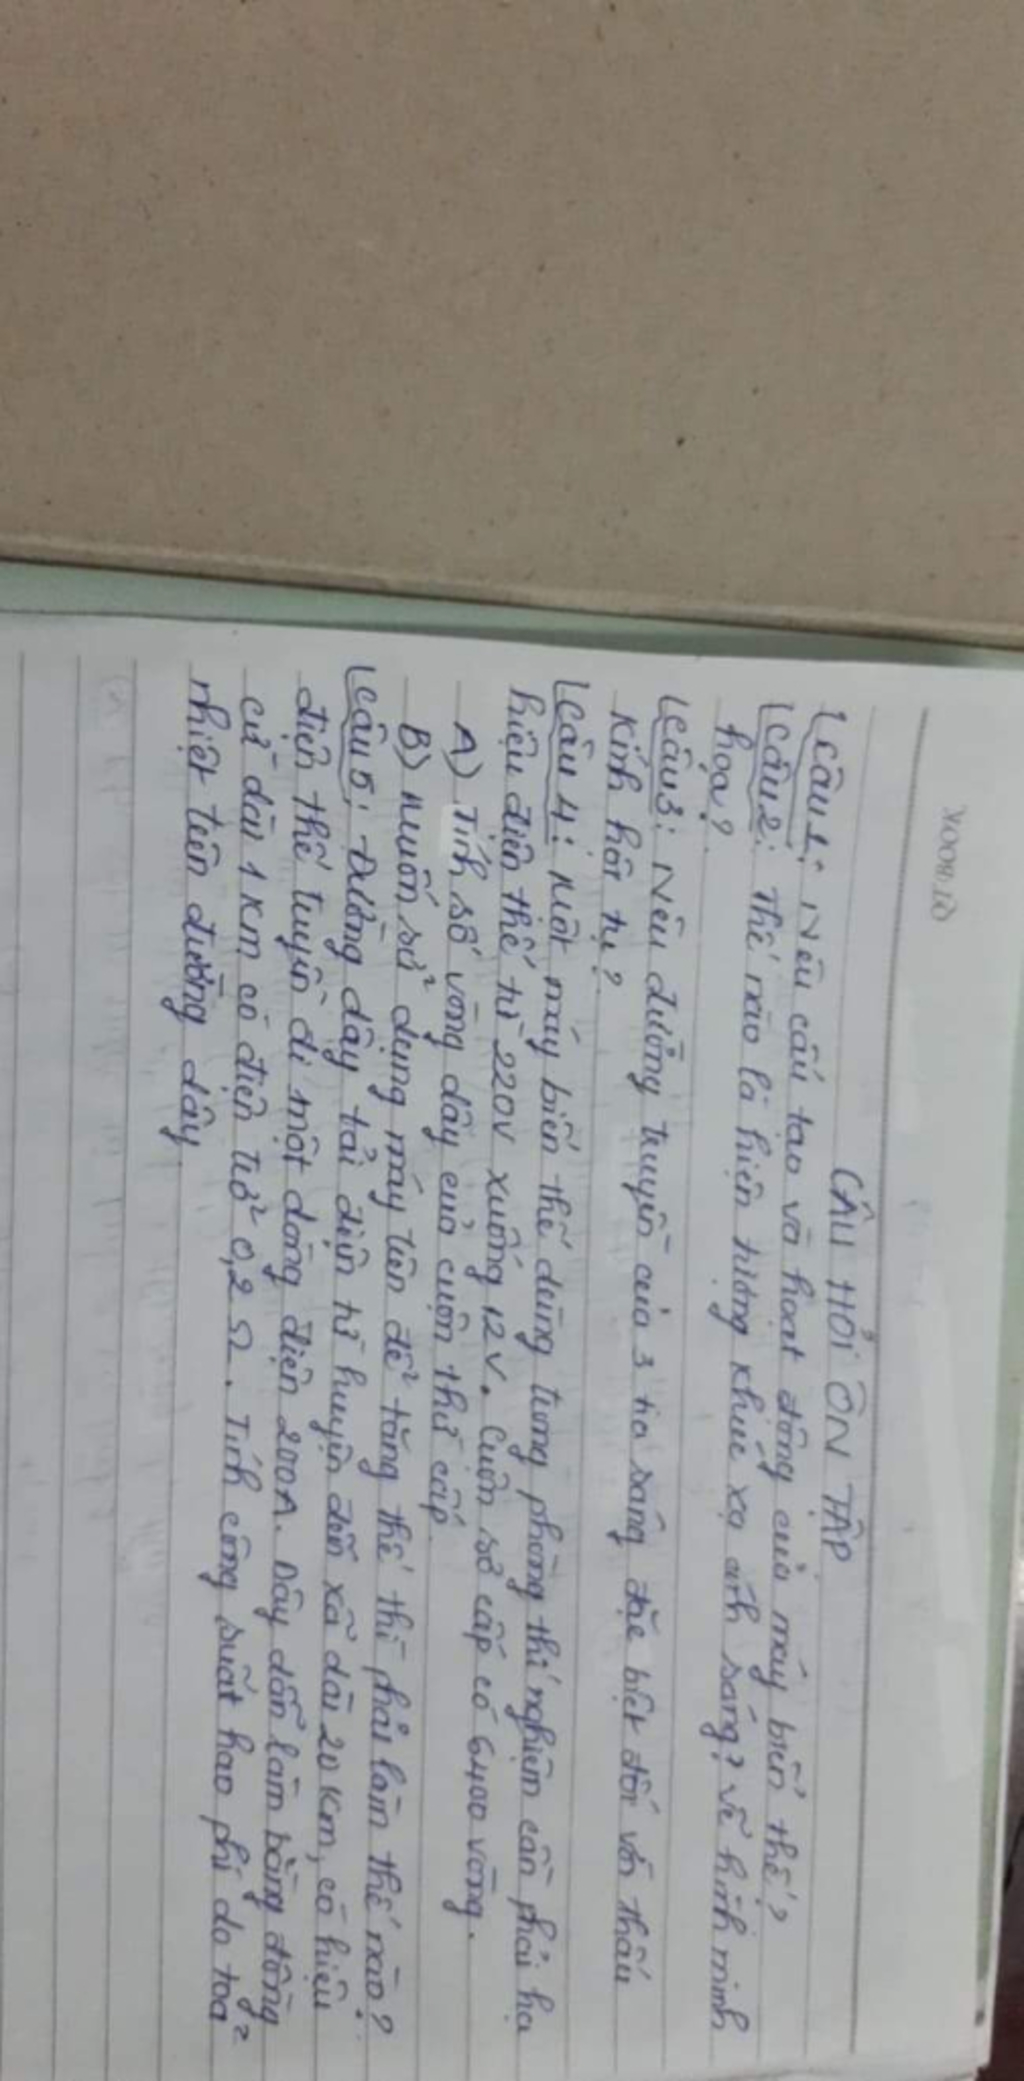 CÂU HỎI ÔN TẬP
Câu 1: Nêu cấu tạo và hoạt động của máy biến thế?
Câu 2: Thế nào là hiện tượng khúc xạ ánh sáng? Vẽ hình minh
họa?
Câu 3: Nêu đường truyền của 3 tia sáng đặc biệt đối với thấu
kính hội tụ?
Câu 4: Một máy biến thế dùng trong phòng thí nghiệm cần phải hạ
hiệu điện thế từ 220V xuống 12V. Cuộn sơ cấp có 6400 vòng.
A) Tính số vòng dây của cuộn thứ cấp.
B) Muốn sử dụng máy trên để tăng thế thì phải làm thế nào?
Câu 5: Đường dây tải điện từ huyện đến xã dài 20 km, có hiệu
điện thế truyền đi một dòng điện 200A. Dây dẫn làm bằng đồng
cứ dài 1 km có điện trở 0,2 Ω. Tính công suất hao phí do toả
nhiệt trên đường dây